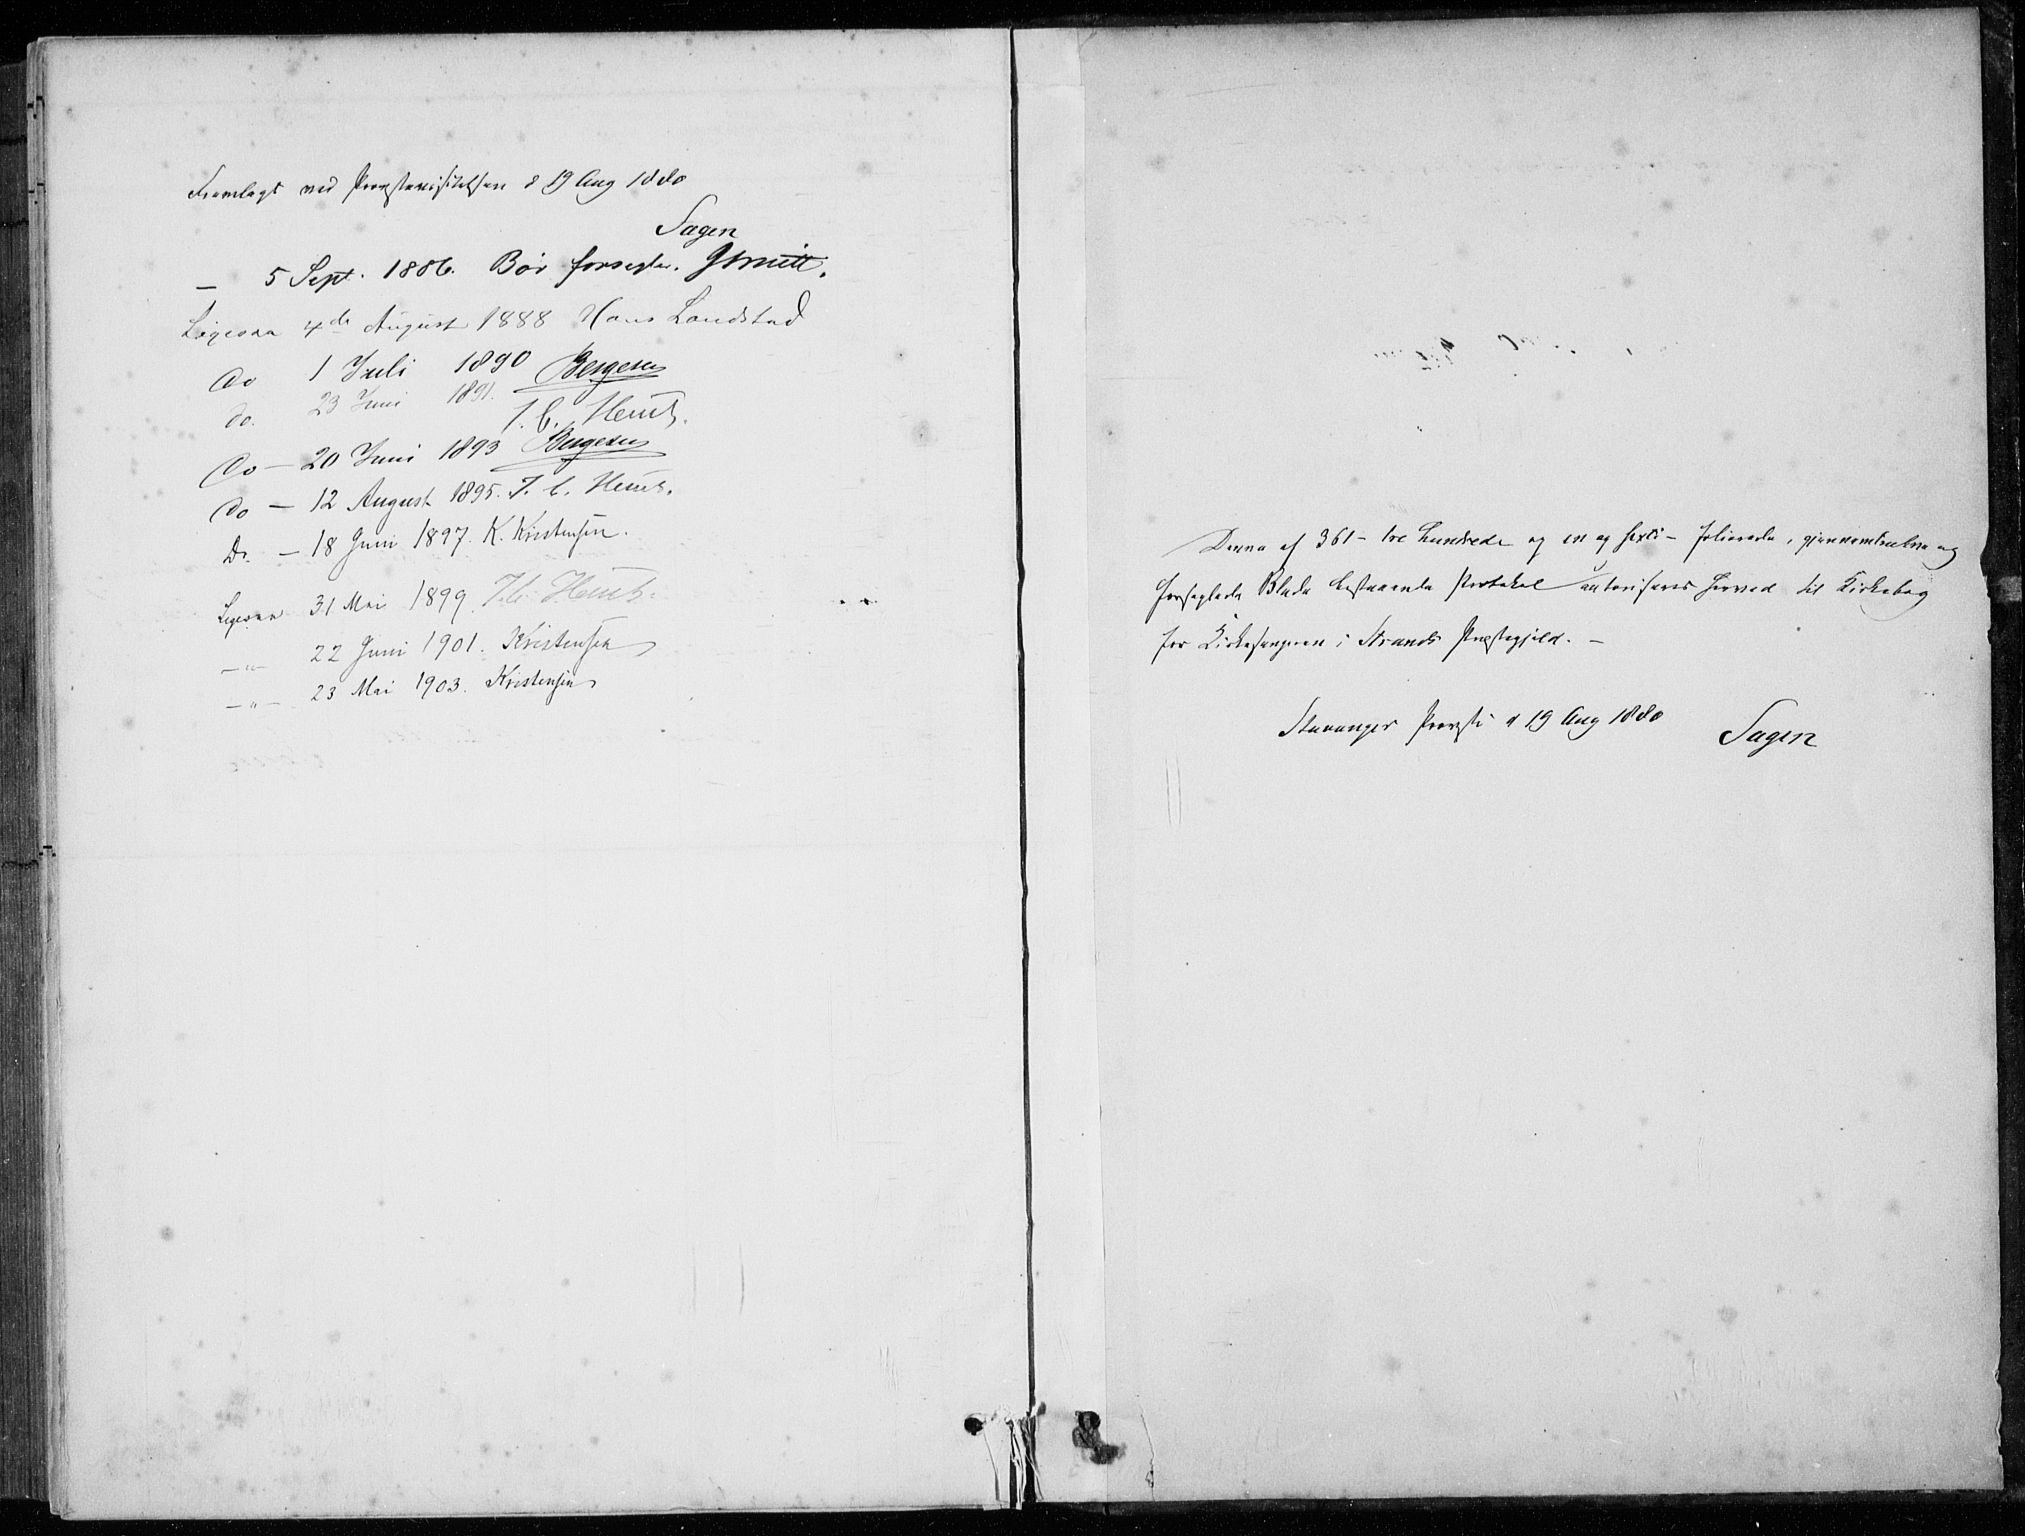 Fremlagt ved Provstevisitatsen d 19 Aug 1880
Sagen
— 5 Sept. 1886. Bør forsegles.
Ligesaa 4de August 1888 Hans Landstad
Do 1 Juli 1890 Bergesen
do. 23 Juni 1891.
Do — 20 Juni 1893 Bergesen
Do — 12 August 1895.
Do. — 18 Juni 1897. K. Kristensen.
Ligesaa 31 Mai 1899
—"— 22 Juni 1901. Kristensen
—"— 23 Mai 1903. Kristensen
Denne af 361 – tre hundrede og en og sexti – folierede, gjennemtrukne og
forseglede Blade bestaaende Protokol autoriseres herved til Kirkebog
for Kirkesangeren i Strands Præstegjeld. —
Stavanger Provsti d 19 Aug 1880
Sagen